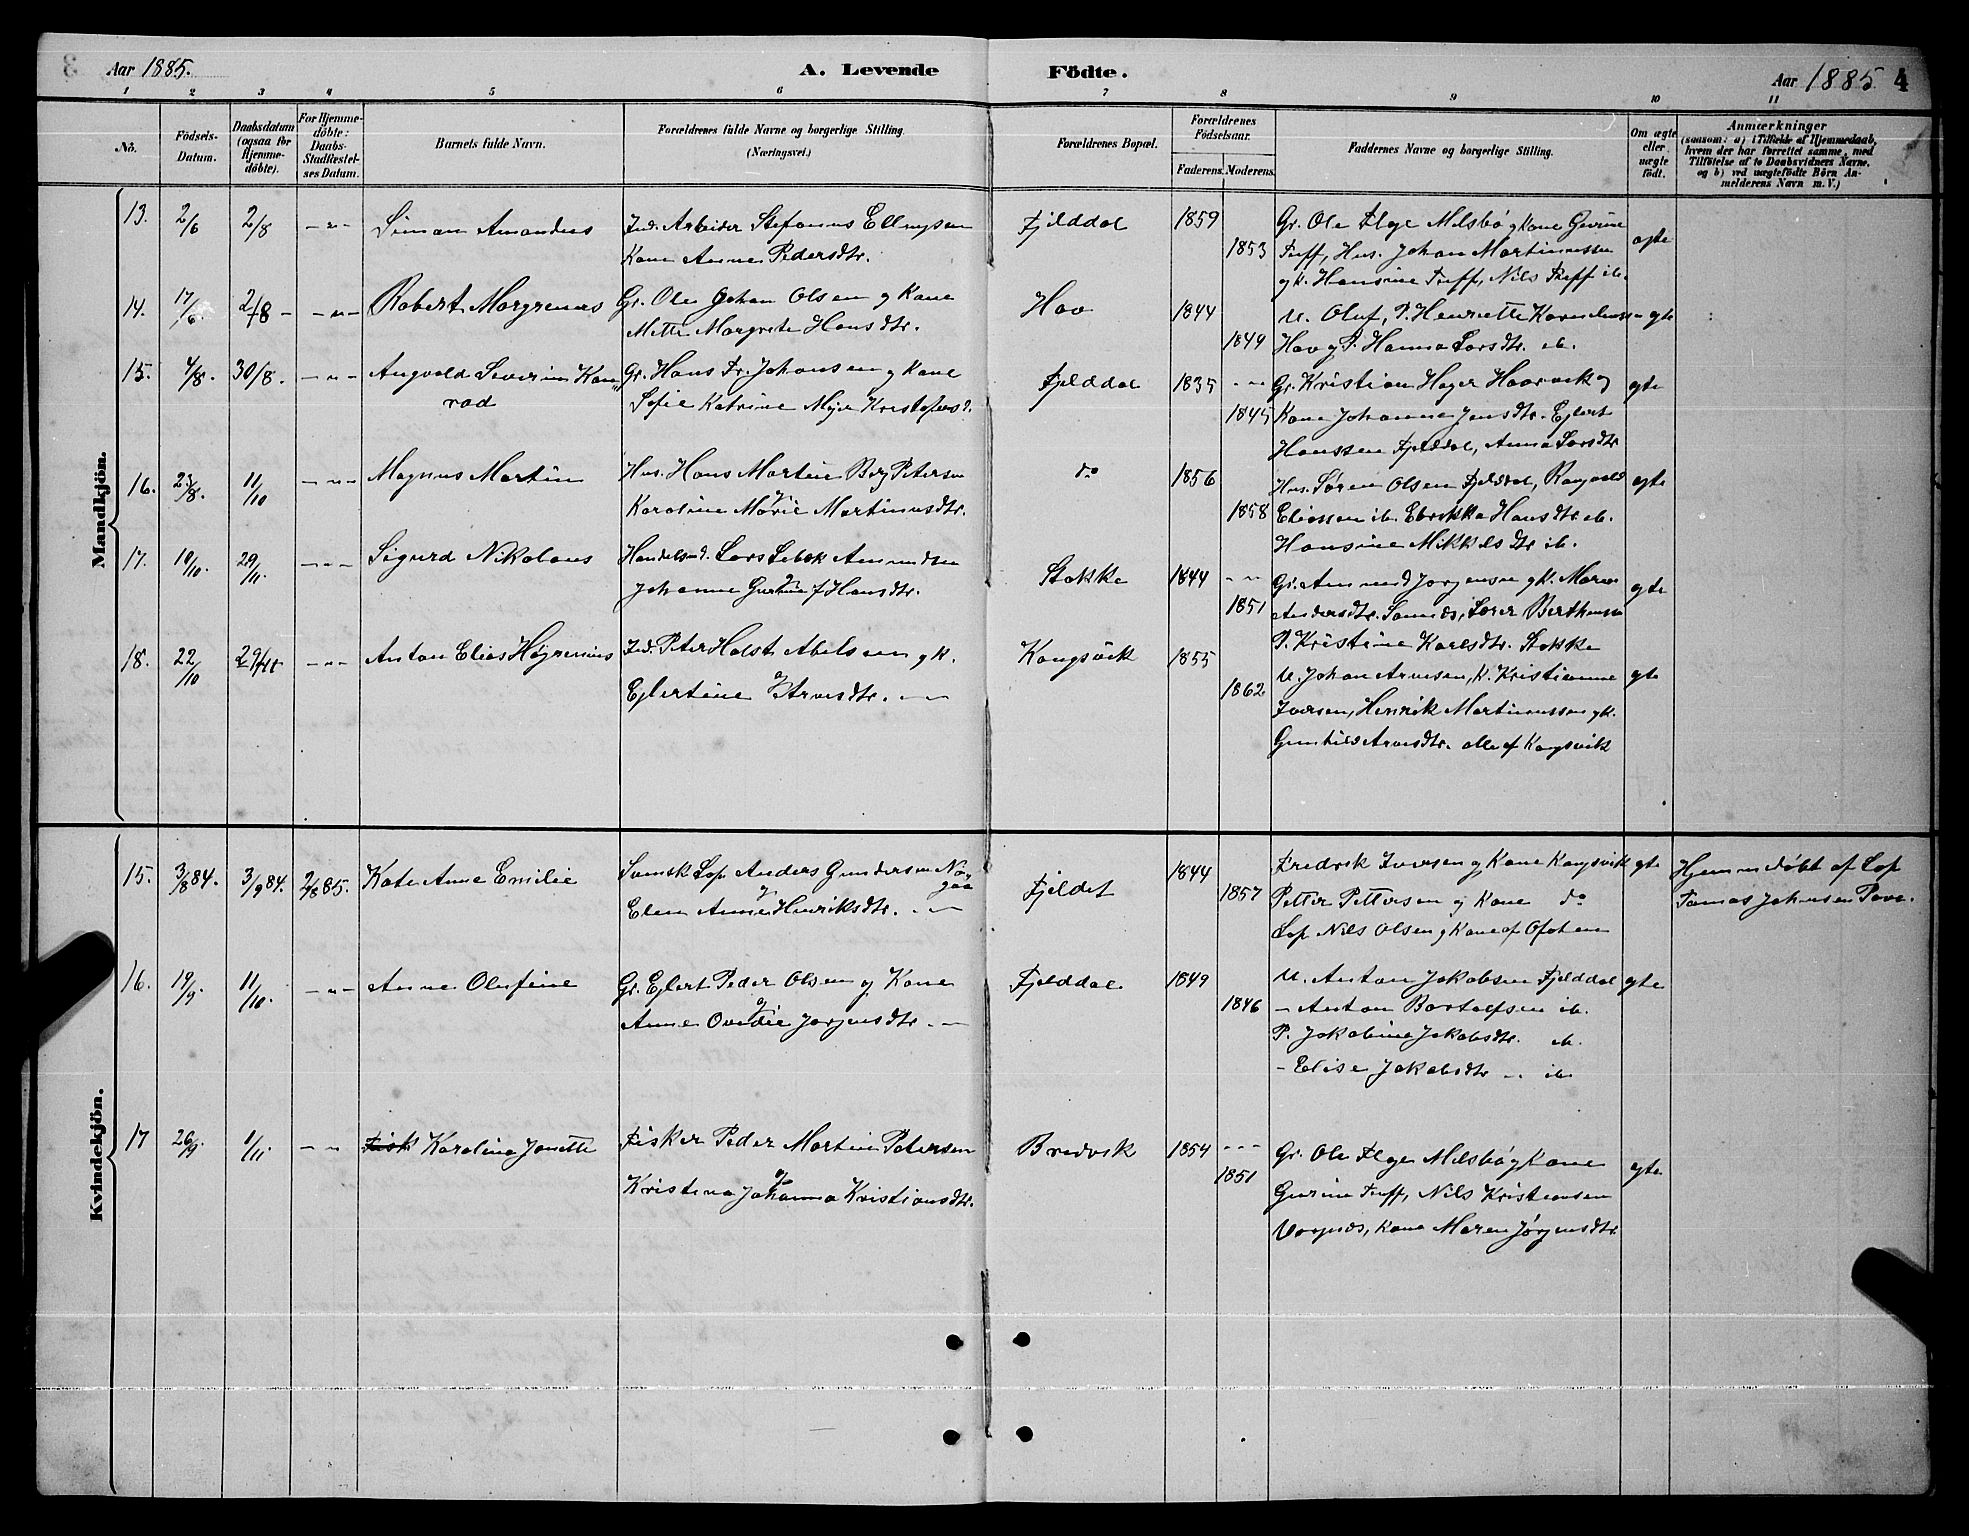 Aar 1885. A. Levende Födte. Aar 1885 4
1 2 3 4 5 6 7 8 9 10 11
No. Födsels-Datum. Daabsdatum (ogsaa for Hjemme-döbte). For Hjemme-döbte: Daabs-Stadfæstel-ses Datum. Barnets fulde Navn. Forældrenes fulde Navne og borgerlige Stilling. (Næringsvei.) Forældrenes Bopæl. Forældrenes Födselsaar. Faderens. Moderens. Faddernes Navne og borgerlige Stilling. Om ægte eller uægte født. Anmærkninger
(saasom: a) i Tilfælde af Hjemmedaab,
hvem der har forrettet samme, med
Tilföielse af to Daabsvidners Navne.
og b) ved uægtefödte Börn An-
melderens Navn m. V.)
Mandkjön.
13. 2/6 2/8 -"- Simon Amandus Ind. Arbeider Stefanus Ellingsen Fjelddal 1859 Gr. Ole Elge Melsbø og Kone Gurine
Kone Anne Pedersdtr. 1853 Truff, Hus. Johan Martinussen ægte
og k. Hansine Truff, Nils Truff ib.
14. 17/6. 2/8 - -"- Robert Margrenius Gr. Ole Johan Olsen og Kone Hov 1844 U. Oluf, P. Henriette Korneliussen ægte
Mette Margrete Hansdtr. 1849 Hov og P. Hanna Larsdtr. ib.
15. 4/8. 30/8. -"- Angvald Severin Kon- Gr. Hans Fr. Johansen og Kone Fjelddal 1835 -"- Gr. Kristian Hager Haarvik og ægte
rad Sofie Katrine Mejer Kristofersd. 1845 Kone Johanne Jensdtr. Eglert
Hanssen Fjelddal, Anna Larsdtr
16. 23/8. 11/10 -"- Magnus Martin Hus. Hans Martin Berg Petersen do 1856 Hus. Søren Olsen Fjelddal, Ragvald ægte
Karoline Marie Martinusdtr. 1858 Eliassen ib. Ebrikka Hansdtr. ib.
Hansine Mikkelsdtr ib.
17. 10/10. 29/11. -"- Sigurd Nikolaus Handelsmd. Lars Lebek Amundsen Stokke 1844 -"- Gr. Amund Jørgensen og k. Maren ægte
Johanne Gurine f Hansdtr. 1851 Andersdtr. Sannes, Lærer Berthensen
P. Kristine Karlsdtr. Stokke
18. 22/10 29/11 -"- Anton Elias Høgrenius Ind. Peter Holst Abelsen og k. Kongsvik 1855 U. Johan Arnesen, K. Kristianne ægte
Eglertine Arnesdtr. -"- 1862 Iversen, Henrik Martinussen og k.
Gunhild Arnesdtr. alle af Kongsvik
Kvindekjön.
15. 3/8 84. 3/9 84. 2/8 85. Kate Anna Emilie Svensk Lap Anders Gundersen No- Fjeldet 1844 Fredrik Iversen og Kone Kongsvik ægte Hjemmedøbt af Lap
gaa Elen Anne Henriksdtr. -"- 1857 Petter Pettersen og Kone do Tomas Johnsen Pave.
Lap Nils Olsen og Kone af Ofoten
16. 19/9. 11/10. -"- Anne Olufine Gr. Eglert Peder Olsen og Kone Fjelddal 1849 U. Anton Jakobsen Fjelddal ægte
Anne Ovedie Jørgensdtr. -"- 1846 - Anton Bartolfsen ib.
P. Jakobine Jakobsdtr. ib.
- Elise Jakobsdtr -"- ib.
17 26/9. 1/11. -"- Karolina Janette Fisker Peder Martin Petersen Bredvik 1854 --- Gr. Ole Elge Melsbø og Kone
Kristina Johanna Kristiansdtr. 1851 Gurine Truff, Nils Kristensen ægte
Vorpnes, Kone Maren Jørgensdtr.